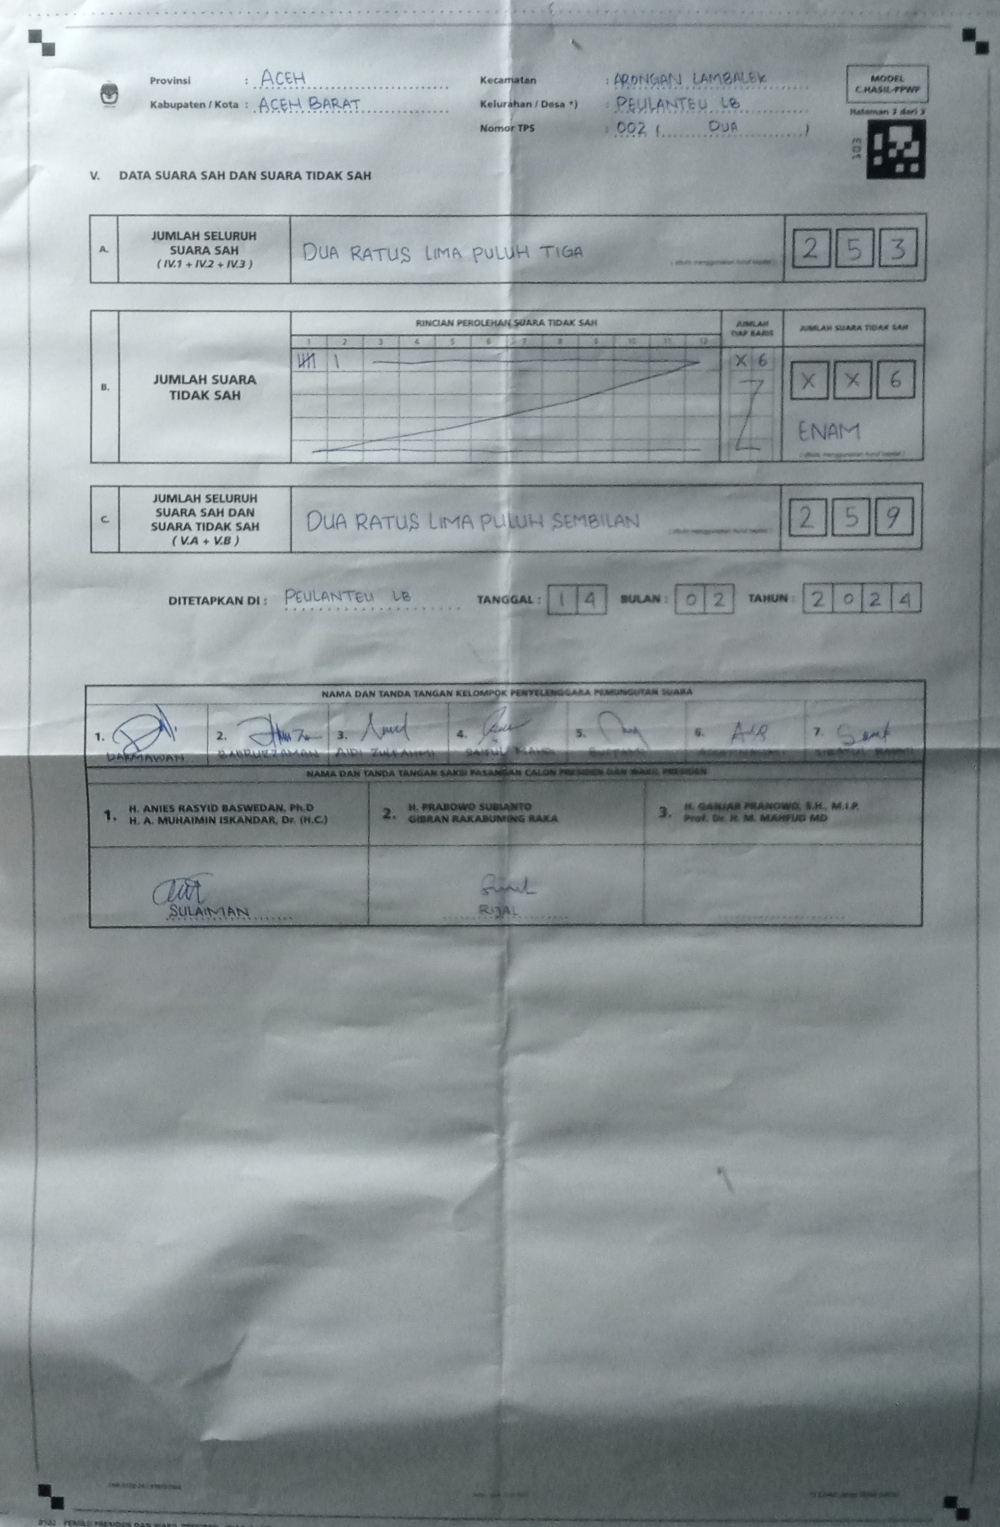 Provinsi : ACEH
Kabupaten / Kota : ACEH BARAT
Kecamatan : ARONGAN LAMBALEK
Kelurahan / Desa *) : PEULANTEU LB
Nomor TPS : 002 ( DUA )
MODEL
C.HASIL-PPWP
Halaman 3 dari 3
V. DATA SUARA SAH DAN SUARA TIDAK SAH
A. JUMLAH SELURUH
SUARA SAH
( IV.1 + IV.2 + IV.3 )
DUA RATUS LIMA PULUH TIGA
2 5 3
B. JUMLAH SUARA
TIDAK SAH
RINCIAN PEROLEHAN SUARA TIDAK SAH
1 2 3 4 5 6 7 8 9 10 11 12
JUMLAH
TIAP BARIS
X 6
JUMLAH SUARA TIDAK SAH
X X 6
ENAM
C. JUMLAH SELURUH
SUARA SAH DAN
SUARA TIDAK SAH
( V.A + V.B )
DUA RATUS LIMA PULUH SEMBILAN
2 5 9
DITETAPKAN DI : PEULANTEU LB TANGGAL : 1 4 BULAN : 0 2 TAHUN : 2 0 2 4
NAMA DAN TANDA TANGAN KELOMPOK PENYELENGGARA PEMUNGUTAN SUARA
1. 2. 3. 4. 5. 6. 7.
DARMAWAN
NAMA DAN TANDA TANGAN SAKSI PASANGAN CALON PRESIDEN DAN WAKIL PRESIDEN
1. H. ANIES RASYID BASWEDAN, Ph.D
H. A. MUHAIMIN ISKANDAR, Dr. (H.C.)
2. H. PRABOWO SUBIANTO
GIBRAN RAKABUMING RAKA
3. H. GANJAR PRANOWO, S.H., M.I.P.
Prof. Dr. H. M. MAHFUD MD
SULAIMAN
RIJAL